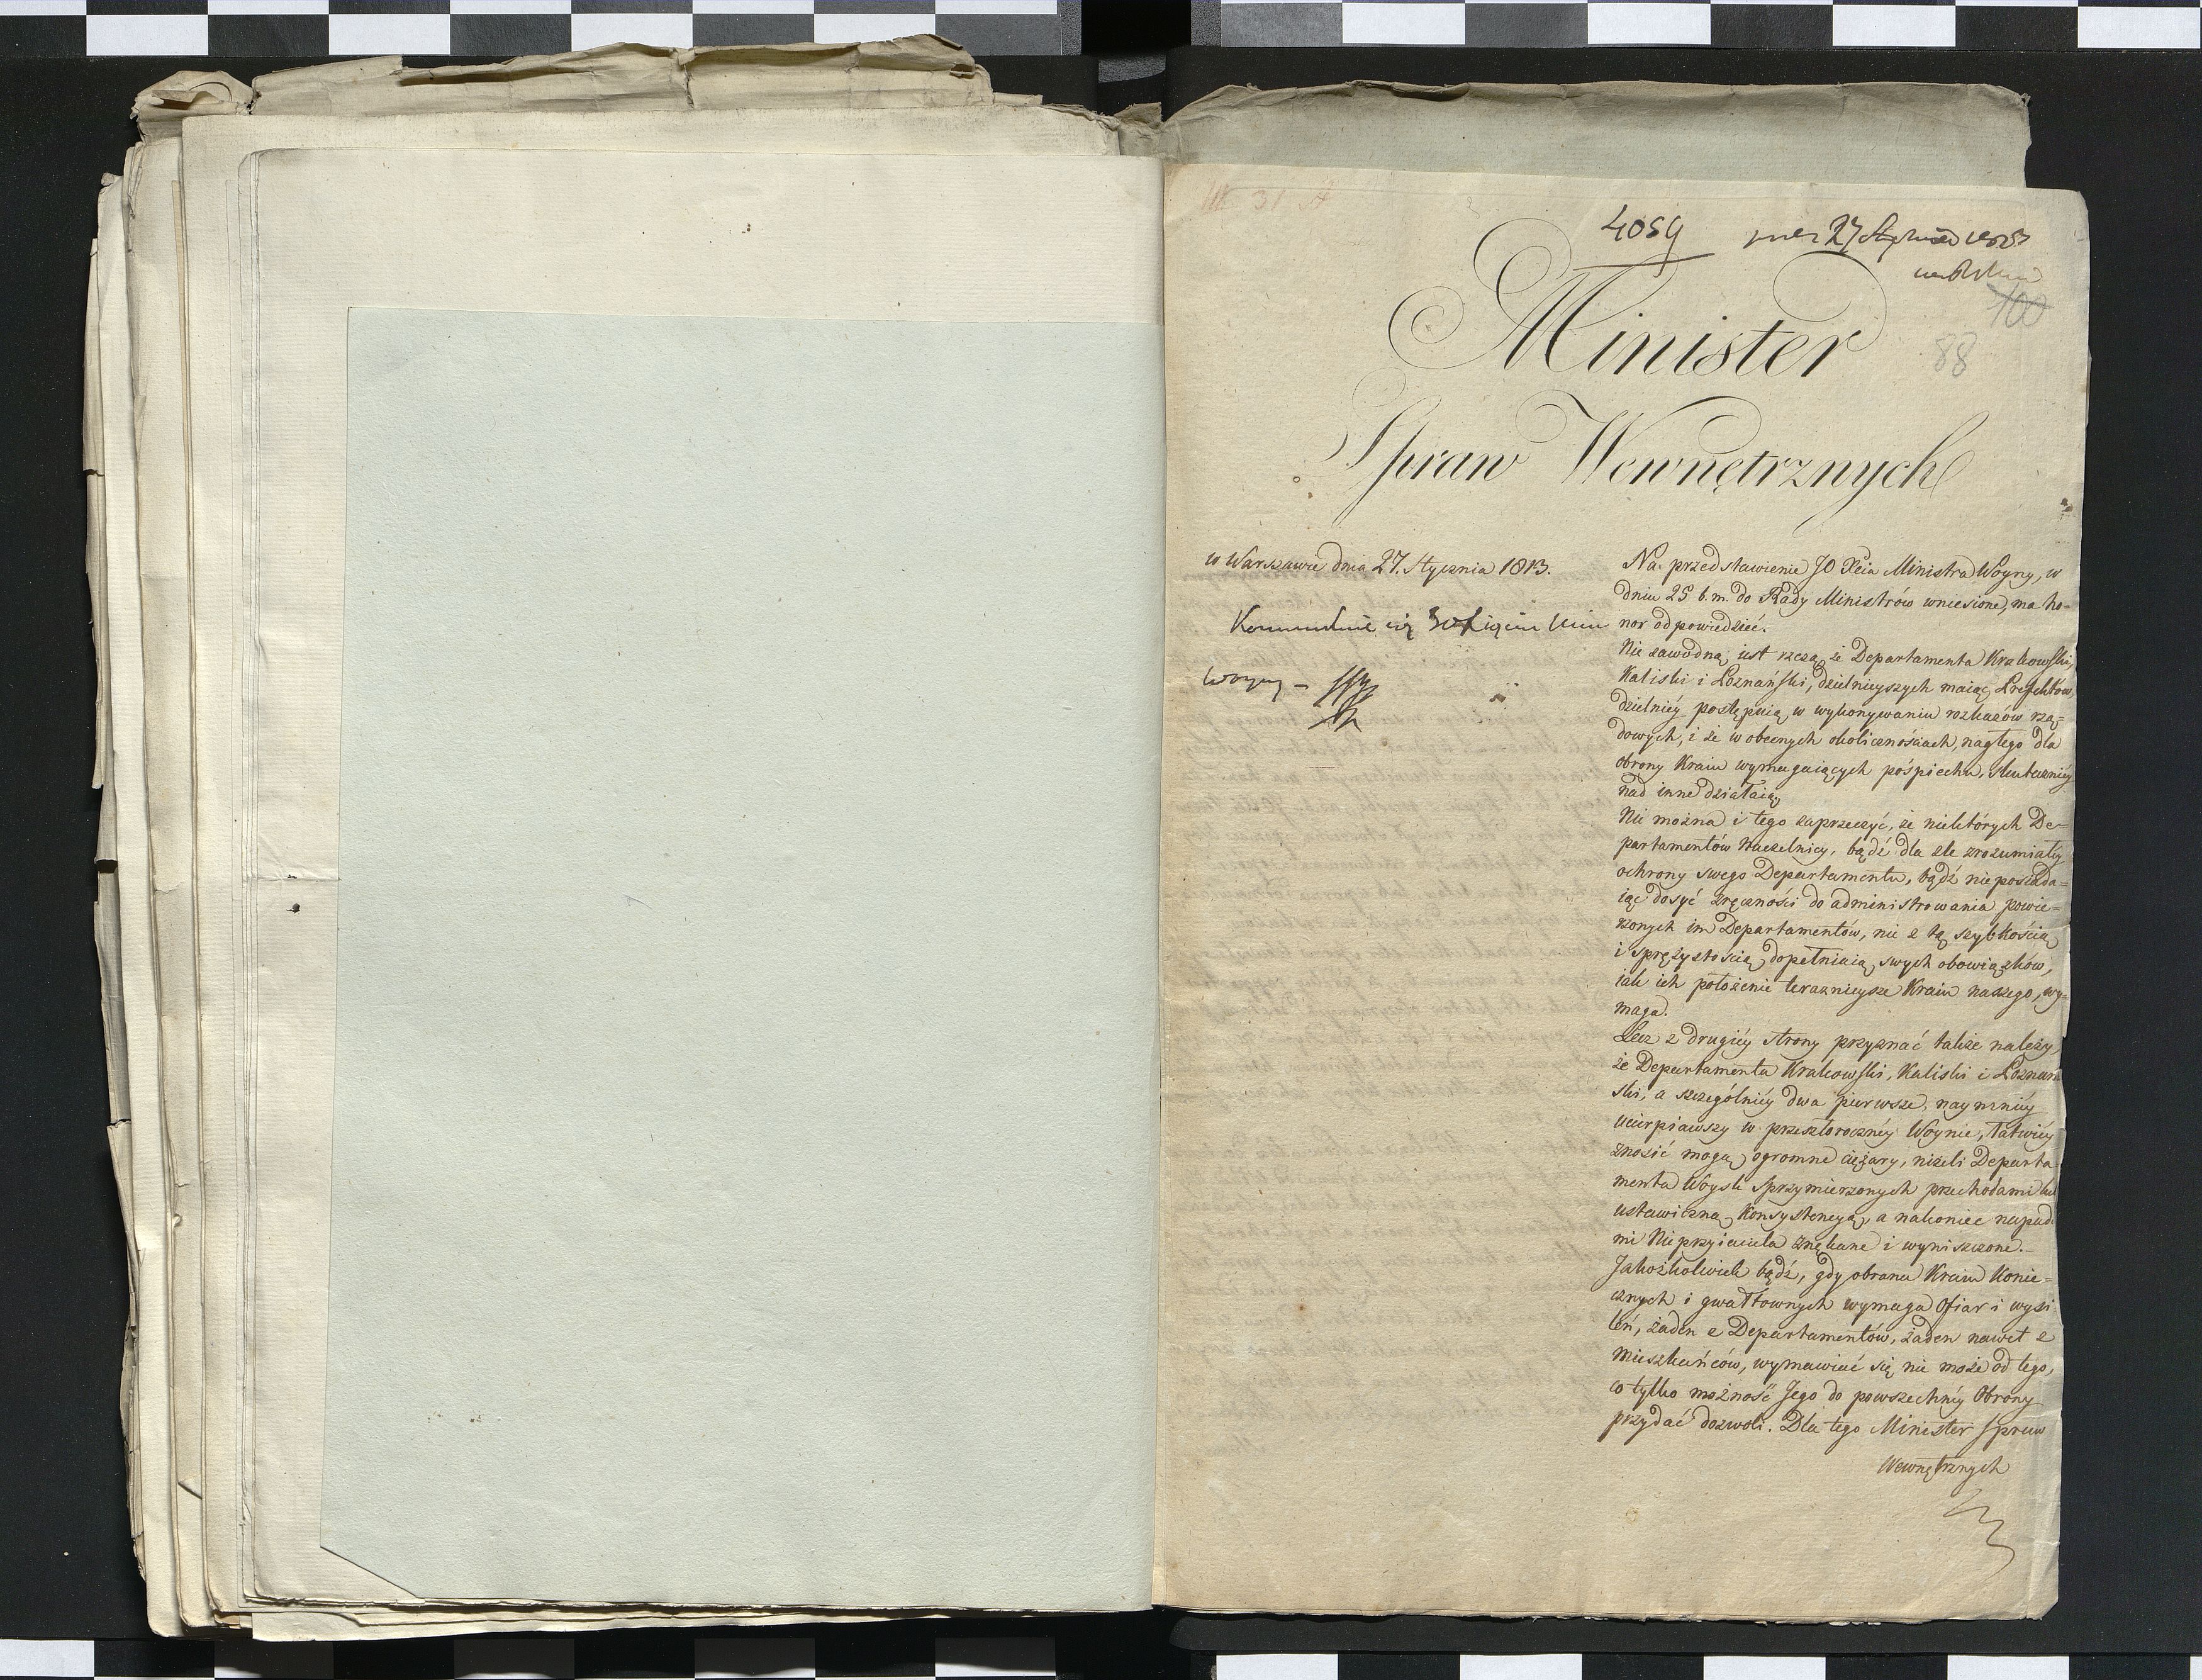 III 31 A
4059
27 Stycznia
100
88
Minister
Spraw Wewnętrznych
w Warszawie dnia 27. Stycznia 1813.
Woyny –
Na przedstawienie JO Xcia Ministra Woyny, w
dniu 25 b. m. do Rady Ministrów wniesione, ma ho-
nor odpowiedzieć.
Nie zawodną iest rzczą, że Departamenta Krakowski,
Kaliski i Poznański, dzielnieyszych maiąc Prefektów,
dzielniéy postępuią w wykonywaniu rozkazów rzą-
dowych, i że w obecnych okolicznościach, nagłego dla
obrony Kraiu wymagaiących pośpiechu, skuteczniéy
nad inne działaią
Nie można i tego zaprzeczyć, że niektórych De-
partamentów Naczelnicy, bądź dla źle zrozumiałéy
ochrony swego Departamentu, bądź nie posiada-
iąc dosyć zręczności do administrowania powie-
rzonych im Departamentów, nie z tą szybkością
i sprężystością dopełniaią swych obowiązków,
iak ich położenie teraznieysze Kraiu naszego, wy-
maga.
Lecz z drugiéy strony przyznać także należy,
że Departamenta Krakowski, Kaliski i Poznań
ski, a szczególniéy dwa pierwsze, naymniéy
ucierpiawszy w przeszłorocznéy Woynie, łatwiéy
znosić mogą ogromne ciężary, niżeli Departa-
menta Woysk sprzymierzonych przechodami lub
ustawiczną Konsystencyą, a nakoniec napad
mi Nieprzyiaciela znękane i wyniszczone. –
Jakożkolwiek bądź, gdy obrona Kraiu Konie-
cznych i gwałtownych wymaga Ofiar i wysi
leń, żaden z Departamentów, żaden nawet z
Mieszkańców, wymawiać się nie może od tego,
co tylko możność Jego do powszechnéy Obrony
przydać dozwoli. Dla tego Minister Spraw
Wewnętrznych